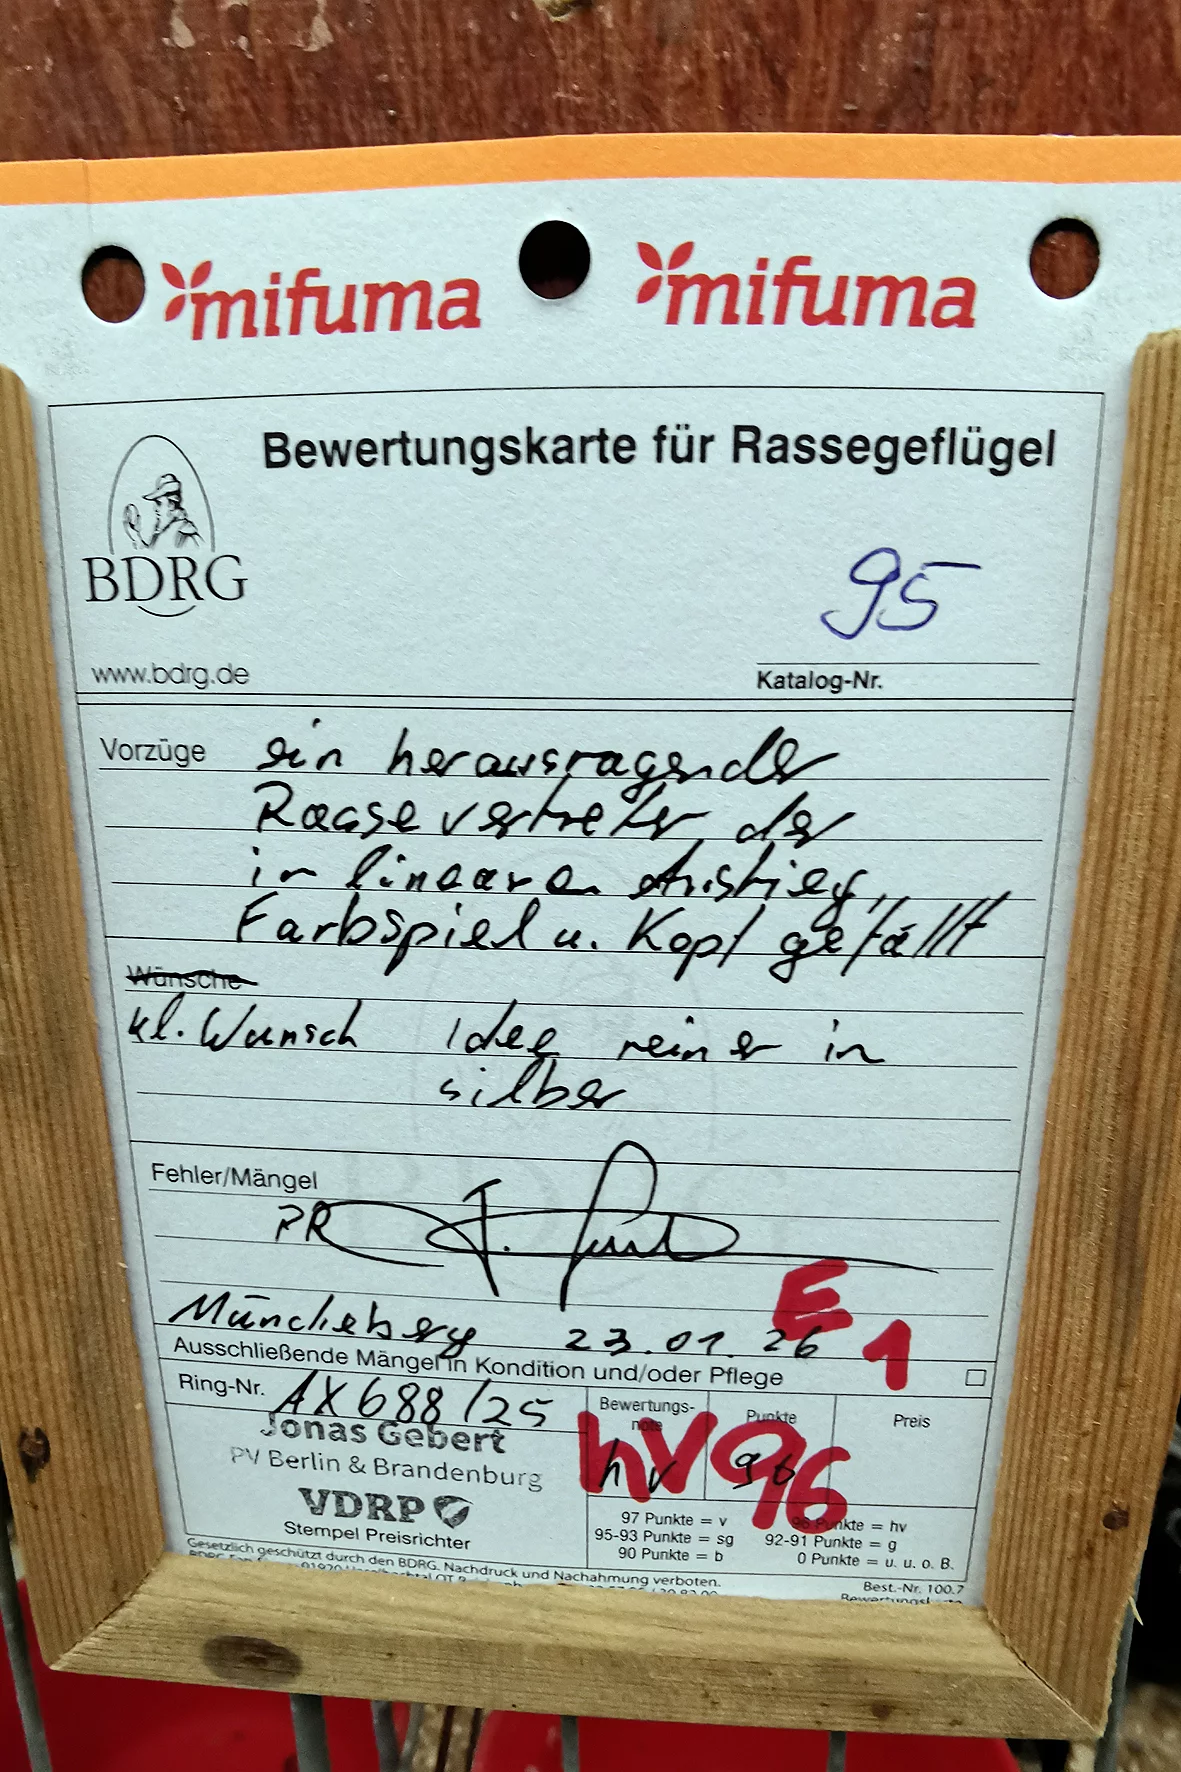 mifuma mifuma
Bewertungskarte für Rassegeflügel
BDRG
95
www.bdrg.de
Katalog-Nr.
Vorzüge ein herausragender
Rassevertreter der
in linearen Anstieg,
Farbspiel u. Kopf gefällt
Wünsche
kl. Wunsch Idee reiner in
silber
Fehler/Mängel
PR
E 1
Müncheberg 23.01.26
Ausschließende Mängel in Kondition und/oder Pflege
Ring-Nr. AX688/25
Bewertungs-
note
Punkte
Preis
hv 96
hv 96
Jonas Gebert
PV Berlin & Brandenburg
VDRP
Stempel Preisrichter
97 Punkte = v 96 Punkte = hv
95-93 Punkte = sg 92-91 Punkte = g
90 Punkte = b 0 Punkte = u. u. o. B.
Gesetzlich geschützt durch den BDRG. Nachdruck und Nachahmung verboten.
Best.-Nr. 100.7